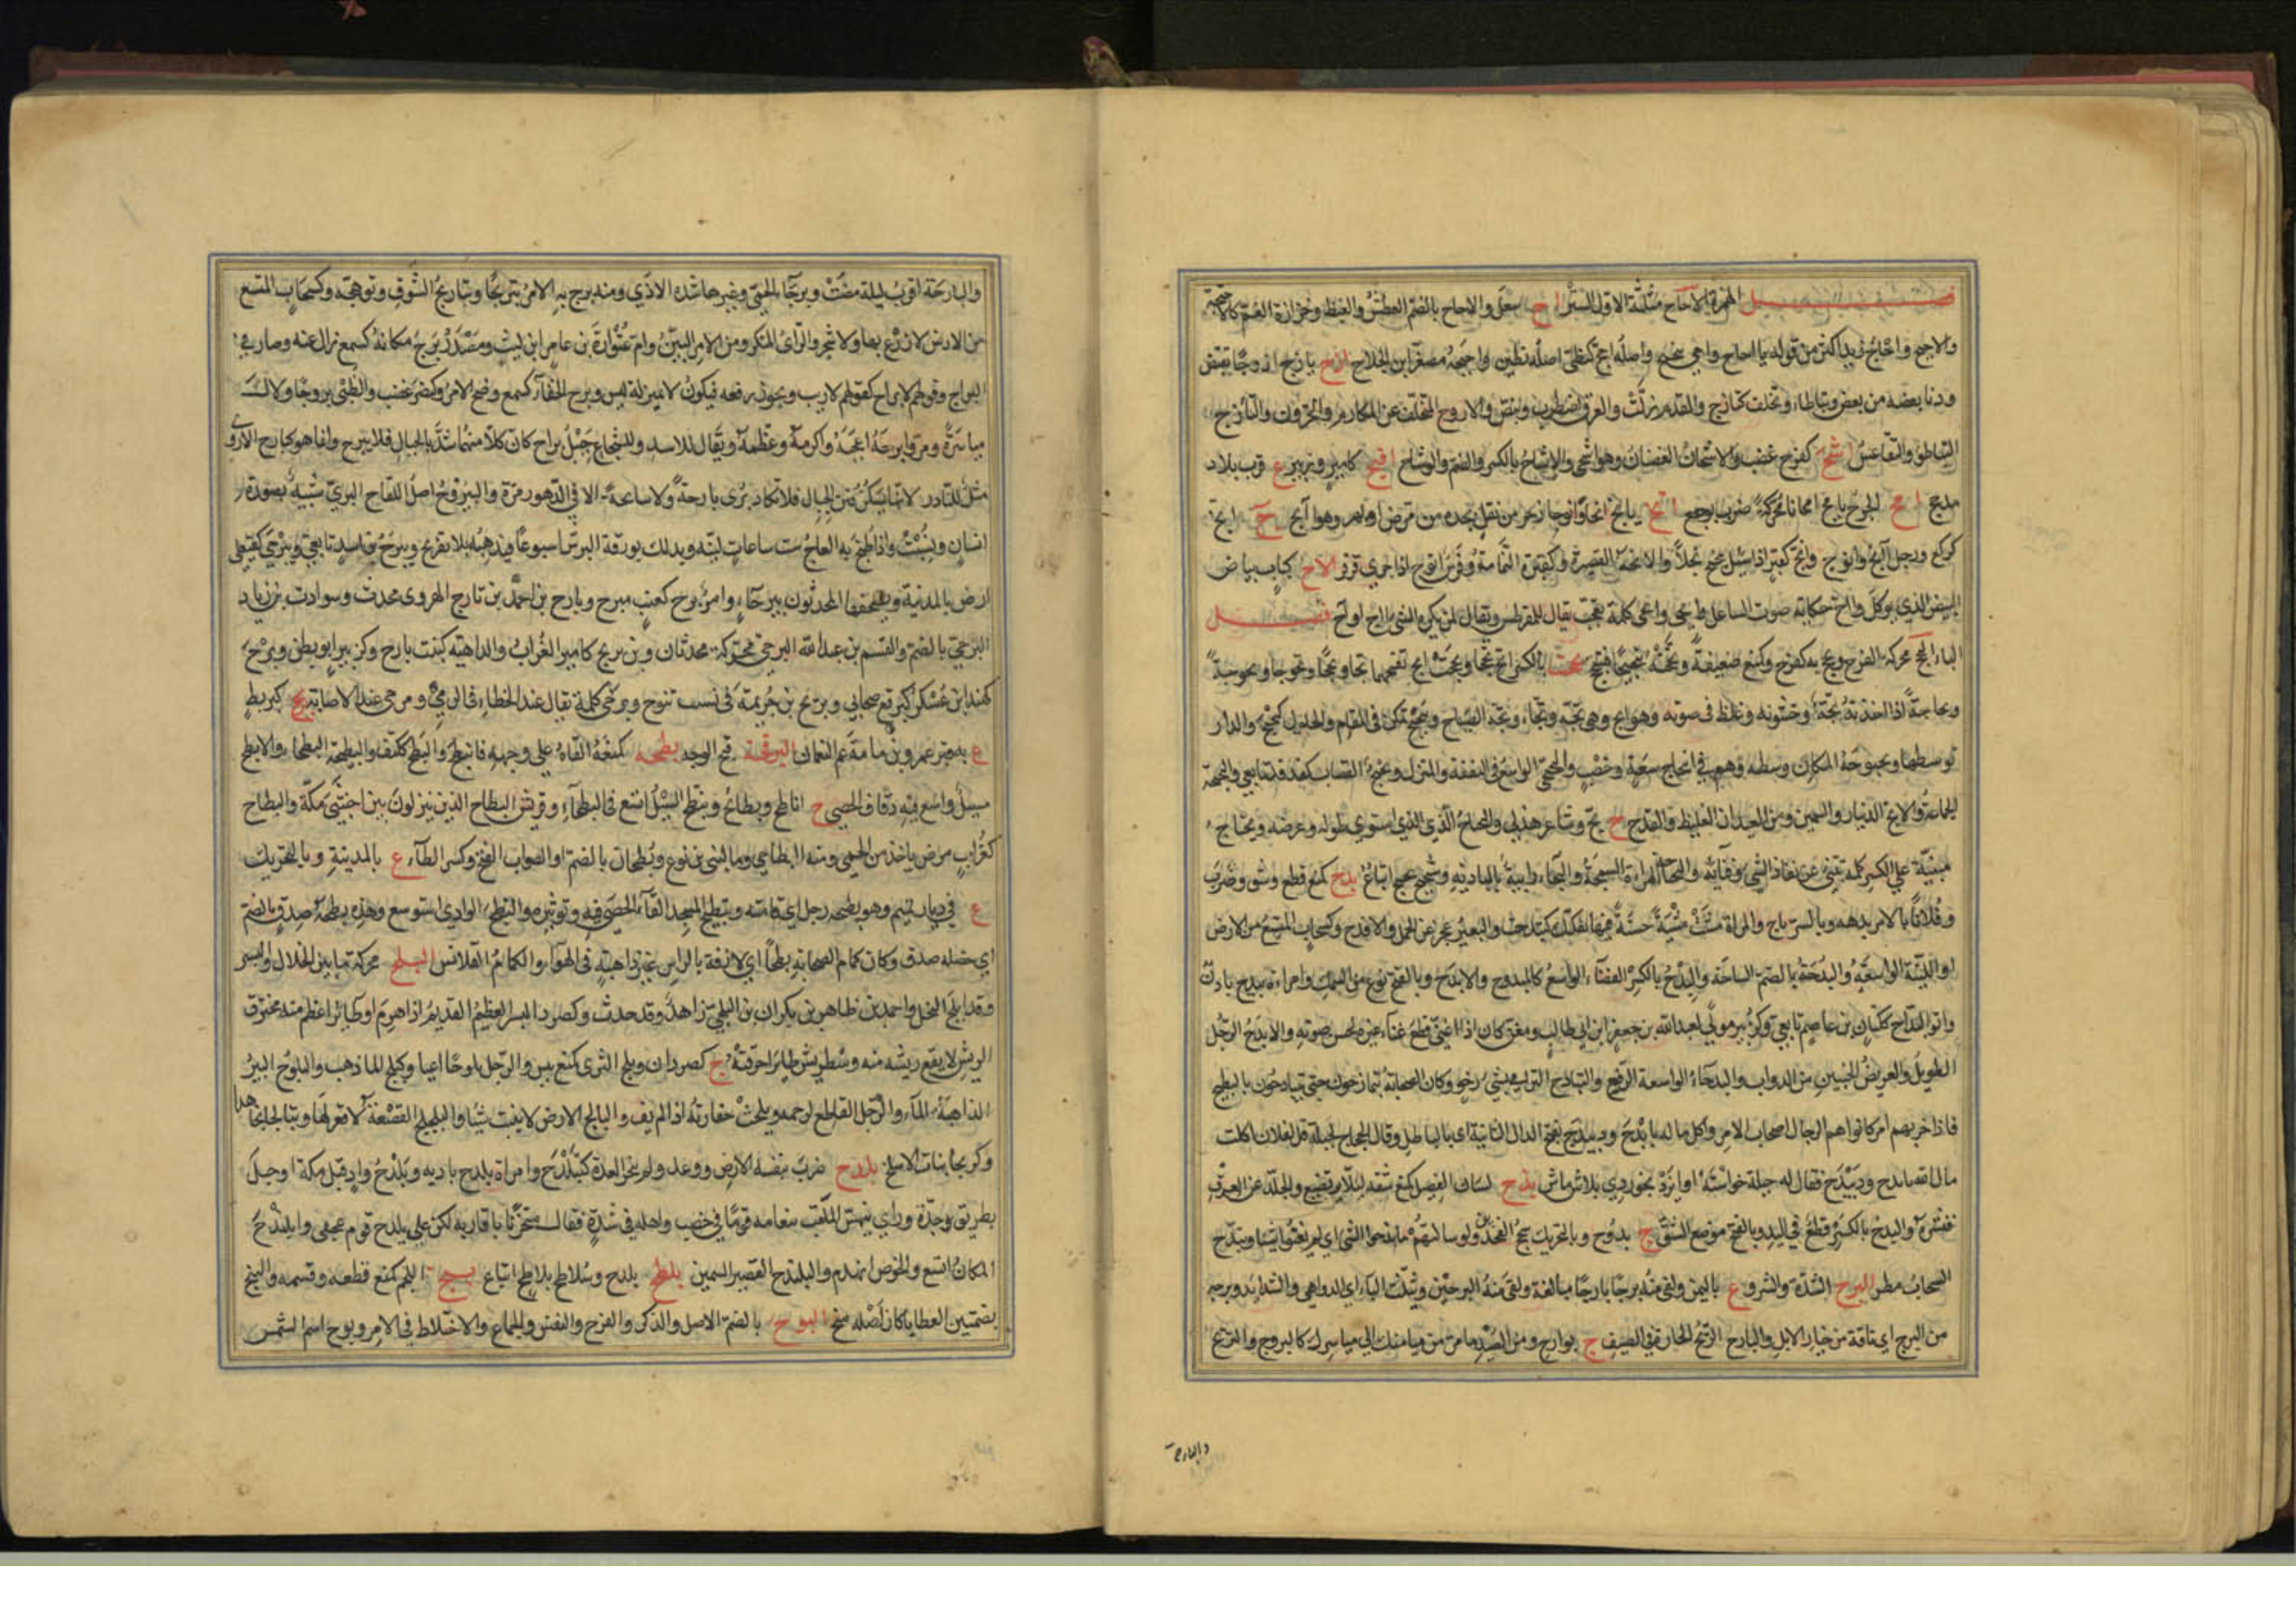 فصل الهمزة الاحاح مثلثة الاول الستر اح سعل والاحاح بالضم العطش والغيظ وحزازة الغم كالاحيحة
والاحيح واحاح زيد اكثر من قوله يا احاح واحى واصله احح كتظنى اصله تظنن واحيحة مصغرا بن الجلاح ازح يازح ازوحا تقبض
ودنا بعضه من بعض وتباطا وتخلف كتازح والقدم زلت والعرق اضطرب ونبض والازوح المتخلف عن المكارم والحرون والتأزح
التباطؤ والتقاعس اشح كفرح غضب والاشحان الغضبان وهى اشحى والاشاح بالكسر والضم والوشاح افيح كامير وزبير ع قرب بلاد
مذحج امح الجرح يامح امحانا محركة ضرب بوجع انح يانح انحا وانوحا زحر من ثقل يجده من مرض او بهر وهو آنح ج انح
كركع ورجل آنح وانوح وانح كقبر اذا سئل تنحنح بخلا والانحة القصيرة وكقبرة النمامة وفرس انوح اذا جرى قرقر الاح ككتاب بياض
البيض الذى يوكل واح حكاية صوت الساعل وايحى كلمة تعجب يقال للمقرطس ويقال لمن يكره الشى آح او اح فصل
الباء البجح محركة الفرح وبجح به كفرح وكمنع ضعيفة وبجحته تبجيحا فتبجح بححت بالكسر ابح بححا وبححت ابح بفتحهما بحا وبححا وبحاحا وبحوحا وبحوحة
وبحاحة اذا اخذته بحة وخشونة وغلظ فى صوته وهو ابح وهى بحة وبحاء وبحه الصياح وتبحبح تمكن فى المقام والحلول كبحبح والدار
توسطها وبحبوحة المكان وسطه وهم فى ابتحاح سعة وخصب والبحبحى الواسع فى النفقة والمنزل وبحبح القصاب كفدفد تابعى والبحبحة
الجماعة والابح الدينار والسمين ومن العيدان الغليظ والقدح ج بح وشاعر هذلى والبحاح الذى استوى طوله وعرضه وبحباح
مبنية على الكسر كلمة تنبئ عن نفاذ الشى وفنائه والبحباحة المراة السمجة والبحاء رابية بالبادية وشحيح بحيح اتباع بدح كمنع قطع وشق وضرب
وفلانا بالامر بدهه وبالسر باح والمراة مشت مشية حسنة فيها تفكك كتبدحت والبعير عجز عن الحمل والابدح وكسحاب المتسع من الارض
او اللينة الواسعة والبدحة بالضم الساحة والبدح بالكسر الفضاء الواسع كالمبدوح والابدح وبالفتح نوع من السمك وامراة بيدح بادن
وابو البداح ككتان بن عاصم تابعى وكزبير مولى لعبدالله بن جعفر ابن ابى طالب ومغن كان اذا غنى قطع غناء غيره لحسن صوته والابدح الرجل
الطويل والعريض الجنبين من الدواب والبدحاء الواسعة الرفغ والتبادح الترامى بشى رخو وكان الصحابة يتمازحون حتى يتبادحون بالبطيخ
فاذا حزبهم امر كانوا هم الرجال اصحاب الامر واكل ماله بابدح ودبيدح بفتح الدال الثانية اى بالباطل وقال الحجاج لجبلة قل لفلان اكلت
مال الله بابدح ودبيدح فقال له جبلة خواسته ايزد بخوردى بلاش ماش بذح لسان الفصيل كمنع شقه لئلا يرتضع والجلد عن العرق
قشره والبذح بالكسر قطع فى اليد وبالفتح موضع الشق ج بذوح وبالتحريك سحج الفخذين ولو سالتهم ما بذحوا بشى اى لم يغنوا شيئا وتبذح
السحاب مطر البرح الشدة والشر وع باليمن ولقى منه برحا بارحا مبالغة ولقى منه البرحين وتثلث الباء اى الدواهى والشدائد وبرحة
من البرح اى ناقة من خيار الابل والبارح الريح الحارة فى الصيف ج بوارح ومن الصيد ما مر من ميامنك الى مياسرك كالبروح والبريح
والبارحة
والبارحة اقرب ليلة مضت وبرحاء الحمى وغيرها شدة الاذى ومنه برح به الامر تبريحا وتباريح الشوق توهجه وكسحاب المتسع
من الارض لا زرع بها ولا شجر والراى المنكر ومن الامر البين وام عتوارة بن عامر ابن ليث ومصدر برح مكانه كسمع زال عنه وصار فى
البراح وقولهم لا براح كقولهم لا ريب ويجوز رفعه فيكون لا بمنزلة ليس وبرح الخفاء كسمع وضح الامر وكنصر غضب والظبى بروحا ولاك
مياسره ومر وابرحه اعجبه واكرمه وعظمه ويقال للاسد وللشجاع حبيل براح كان كلا منهما شد بالحبال فلا يبرح وانما هو كبارح الاروى
مثل للنادر لانها تسكن قنن الجبال فلا تكاد ترى بارحة ولا سانحة الا فى الدهور مرة واليبروح اصل اللفاح البرى شبيه بصورة
انسان ويسبت واذا طبخ به العاج ست ساعات لينه ويدلك بورقه البرش اسبوعا فيذهبه بلا تقريح وبيرح بن اسد تابعى وبيرحى كفيعلى
ارض بالمدينة ويصحفها المحدثون بيرحاء وامر برح كعنب مبرح وبارح بن احمد بن بارح الهروى محدث وسوادة بن زياد
البرحى بالضم والقسم بن عبدالله البرحى محركة محدثان وبن بريح كامير الغراب والداهية كبنت بارح وكزبير ابو بطن وبرح
كهند ابن عسكر كبرقع صحابى وبريح بن خزيمة فى نسب تنوخ وبرحى كلمة تقال عند الخطاء فى الرمى ومرحى عند الاصابة بربح كبربط
ع به قبر عمرو بن مامة عم النعمان البرقحة قبح الوجه بطحه كمنعه القاه على وجهه فانبطح والبطح ككتف والبطيحة والبطحاء والابطح
مسيل واسع فيه دقاق الحصى ج اباطح وبطاح وبطائح وتبطح السيل اتسع فى البطحاء وقريش البطاح الذين ينزلون بين اخشبى مكة والبطاح
كغراب مرض ياخذ من الحمى ومنه البطاحى وماء لبنى يربوع وبطحان بالضم او الصواب الفتح وكسر الطاء ع بالمدينة وبالتحريك
ع فى ديار تميم وهو بطحة رجل اى قامته وتبطيح المسجد القاء الحصى فيه وتوثيره وانبطح الوادى استوسع وهذه بطحة صدق بالضم
اى خصلة صدق وكان كمام الصحابة بطحا اى لازقة بالراس غير ذاهبة فى الهواء والكمام القلانس البلح محركة ما بين الخلال والبسر
وقد ابلح النخل واحمد بن طاهر بن بكران بن البلحى زاهد وقد حدث وكصرد النسر العظيم القديم اذا هرم او طائر اعظم منه محترق
الريش لا يقع ريشه منه وسط ريش طاير الا احرقته ج كصردان وبلح الثرى كمنع يبس والرجل بلوحا اعيا كبلح الماء ذهب والبلوح البير
الذاهبة الماء والرجل القاطع لرحمه وبلحت خفارته اذا لم يف والبالح الارض لا ينبت شيئا والبلبح القصعة لا قعر لها وتبالحا تجاحدا
وكزبحا بنات الاسلح بلدح ضرب بنفسه الارض ووعد ولم ينجز العدة كتبلدح وامراة بلدح بادية وبلدح واد قبل مكة او جبل
بطريق جدة وراى بيهس الملقب بنعامة قوما فى خصب واهله فى شدة فقال متحزنا باقاربه لكن على بلدح قوم عجفى وابلندح
المكان اتسع والحوض انهدم والبلندح القصير السمين بلطح بلدح وسلاطح بلاطح اتباع بنح اللحم كمنع قطعه وقسمه والبنح
بضمتين العطايا كان اصله منح البوح بالضم الاصل والذكر والفرج والنفس والجماع والاختلاط فى الامر وبوح اسم الشمس